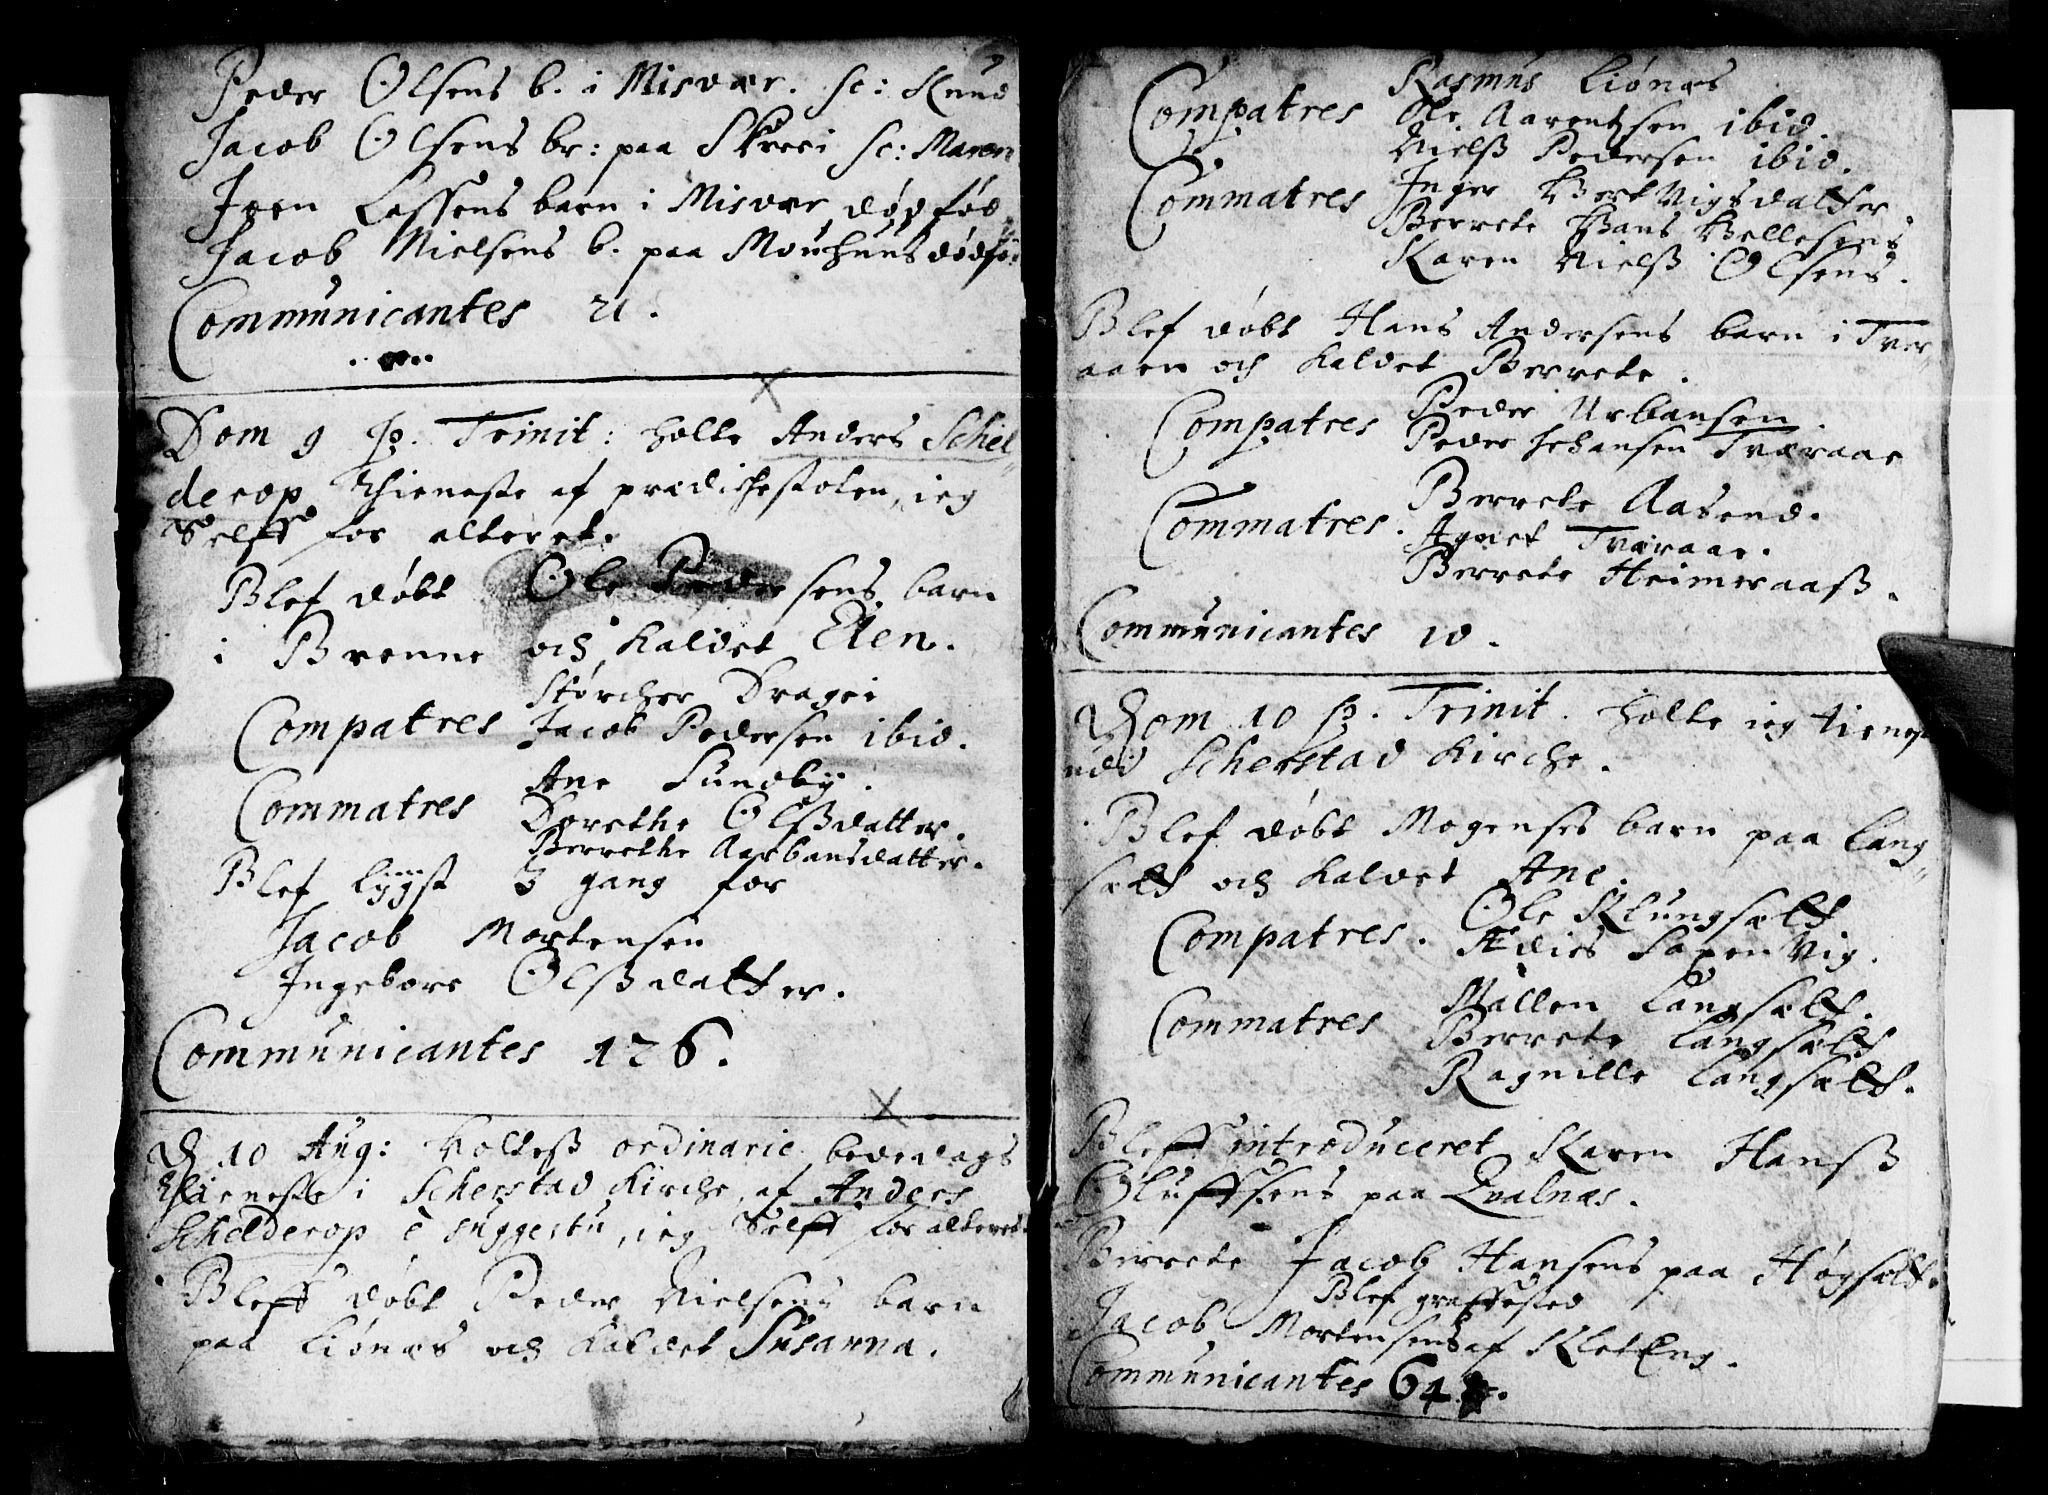 Peder Olsens b. i Misvær. sc: Knud
Jacob Olsens br: paa Skrei sc: Maren
Joen Lassens barn i Misvær, død fød
Jacob Nielsens b. paa dødfø:
Communicantes 21.
Dom 9 p. Trinit: holte Anders Schel
derop Thieneste af prædichestolen, ieg
Selff for alteret.
Blef døbt Ole Pedersens barn
i Brenne och kaldet Elen.
Compatres
Størcher Dragei
Jacob Pedersen ibid.
Commatres
Ane Sundbÿ.
Dorethe Olßdatter.
Berrethe Aarbansdatter.
Blef lÿÿst 3 gang for
Jacob Mortensen
Ingebore Olßdatter.
Communicantes 126.
D. 10 Aug: holteß ordinarie bededags
Thieneste i Scherstad Kirche, af Anders
Schelderop è suggestu, ieg Selff for alteret.
Bleff døbt Peder Nielsens barn
paa Liønæs och kaldet Susanna.
Compatres
Rasmus Liønæs
Ole Aarentzsen ibid.
Nielß Pedersen ibid.
Commatres
Inger Hertvigsdatter.
Berrete Hans Pellesens
Karen Nielß Olsens.
Blef døbt Hans Andersens barn i Tver
aaen och kaldet Berrete.
Compatres
Peder Urbansen
Peder Johansen Tværaae
Commatres.
Berrete Aasend.
Agnet Tværaae.
Berrete Heimeraaß.
Communicantes 10.
Dom 10 p. Trinit. holte ieg tienest
udi Scherstad Kirche.
Blef døbt Mogenses barn paa Lang
sælt och kaldet Ane.
Compatres.
Ole Klungsælt
Ædies Saxenvig.
Commatres
Mallen Langsælt.
Berrete Langsælt
Ragnille Langsælt.
Bleff introduceret Karen Hanß
Oluffsens paa Qvalnæs.
Berrete Jacob Hansens paa Høgsælt.
Blef graffested
Jacob Mortensens af KletEng.
Communicantes 64.